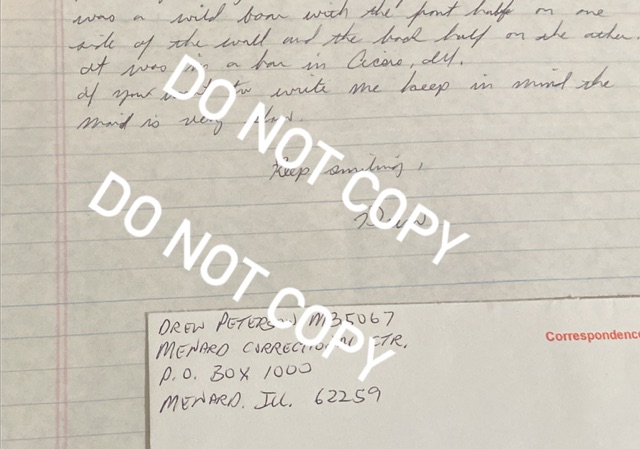 was a wild boar with the front half on one
side of the wall and the back half on the other.
It was in a bar in Cicero, Ill.
If you want to write me keep in mind the
mail is very slow.
Keep smiling,
Drew
DO NOT COPY
DO NOT COPY
DREW PETERSON M35067
MENARD CORRECTION CTR.
P.O. BOX 1000
MENARD, ILL. 62259
Correspondence